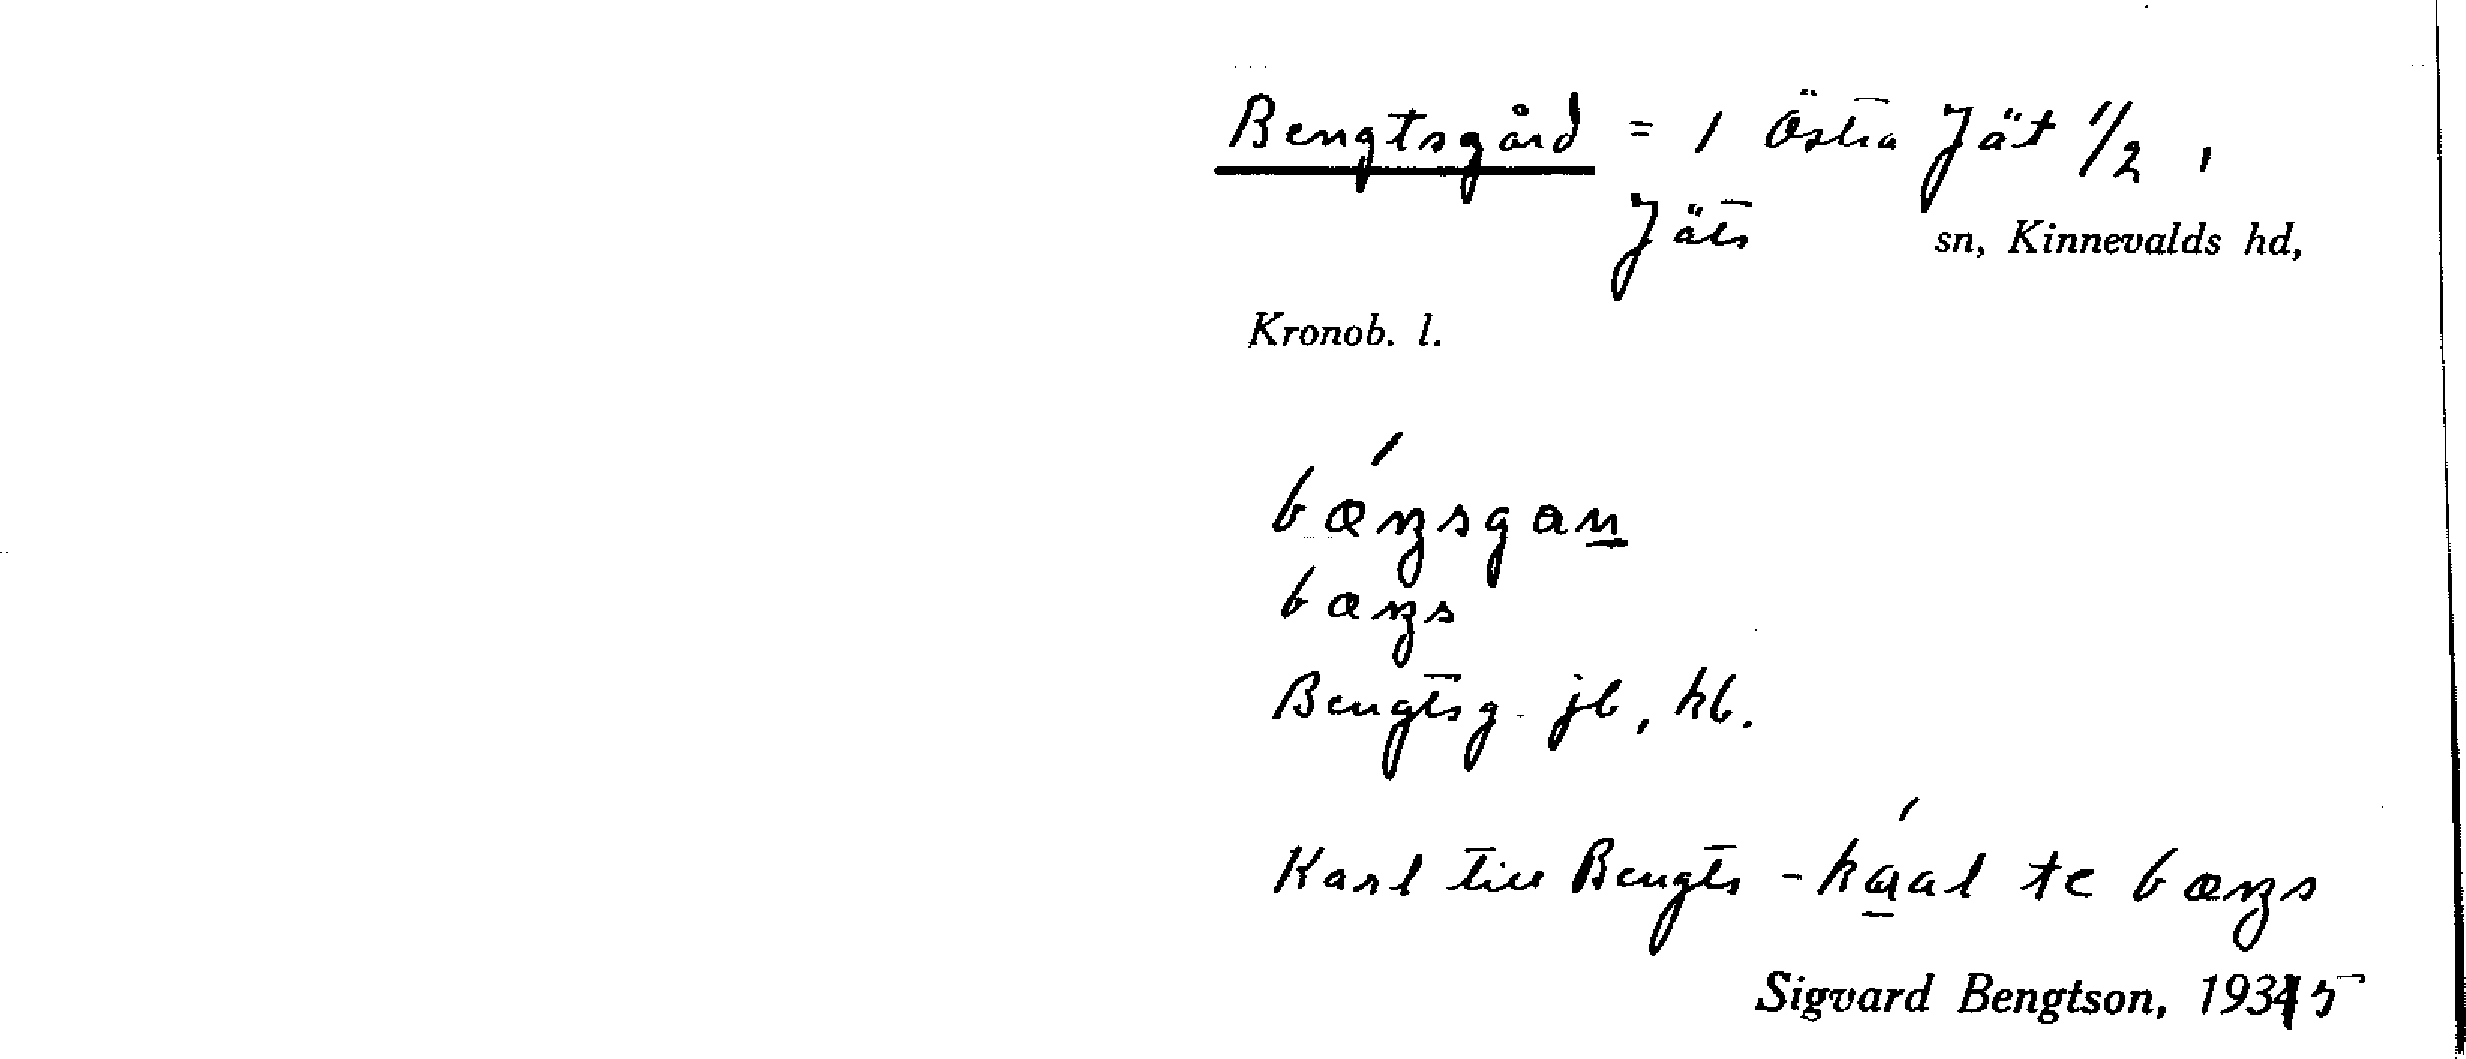 Bengtsgård = 1 Östra Jät 1/2,
Jäts sn, Kinnevalds hd,
Kronob. l.
bæŋsgan
bæŋs
Bengtsg. jb, kb.
Karl till Bengts - kaal te bæŋs
Sigvard Bengtson, 1935